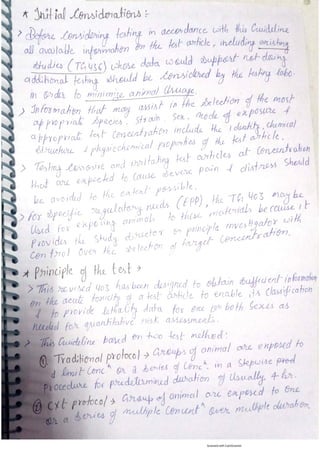 * Initial Considerations :-
> Before Considering testing in accordance with this Guideline
all available information on the test article, including existing
studies (TG 436) whose data would support not doing
additional testing should be considered by the testing labo.
in order to minimize animal Usuage.
> Information that may assist in the Selection of the most
appropriat Species, strain, Sex, mode of exposure &
appropriat test Concentration include the identity, chemical
structure & physiochemical properties of the test article.
> Testing Corrosive and irritating test articles at Concentration
that are expected to Cause Severe pain & distress should
be avoided to the extent possible.
> for Specific regulatory needs (EPD), the TG 403 may be
Used for exposing animals to these materials because it
Provides the Study director or principle investigator with
Control over the Selection of target Concentration.
* Principle of the test *
> This revised 403 has been designed to obtain Sufficient information
on the acute toxicity of a test article to enable its Classification
& to provide lethality data for one or both Sexes as
needed for quantitative risk assessments.
> This Guideline based on two test method:
① Traditional protocol → Groups of animal are exposed to
a limit Concⁿ or a Series of Concⁿ. in a Stepwise
procedure for predetermined duration of Usually 4 hr.
② CxT protocol → Group of animal are exposed to one
or a Series of multiple Concentⁿ over multiple duration.
Scanned with CamScanner